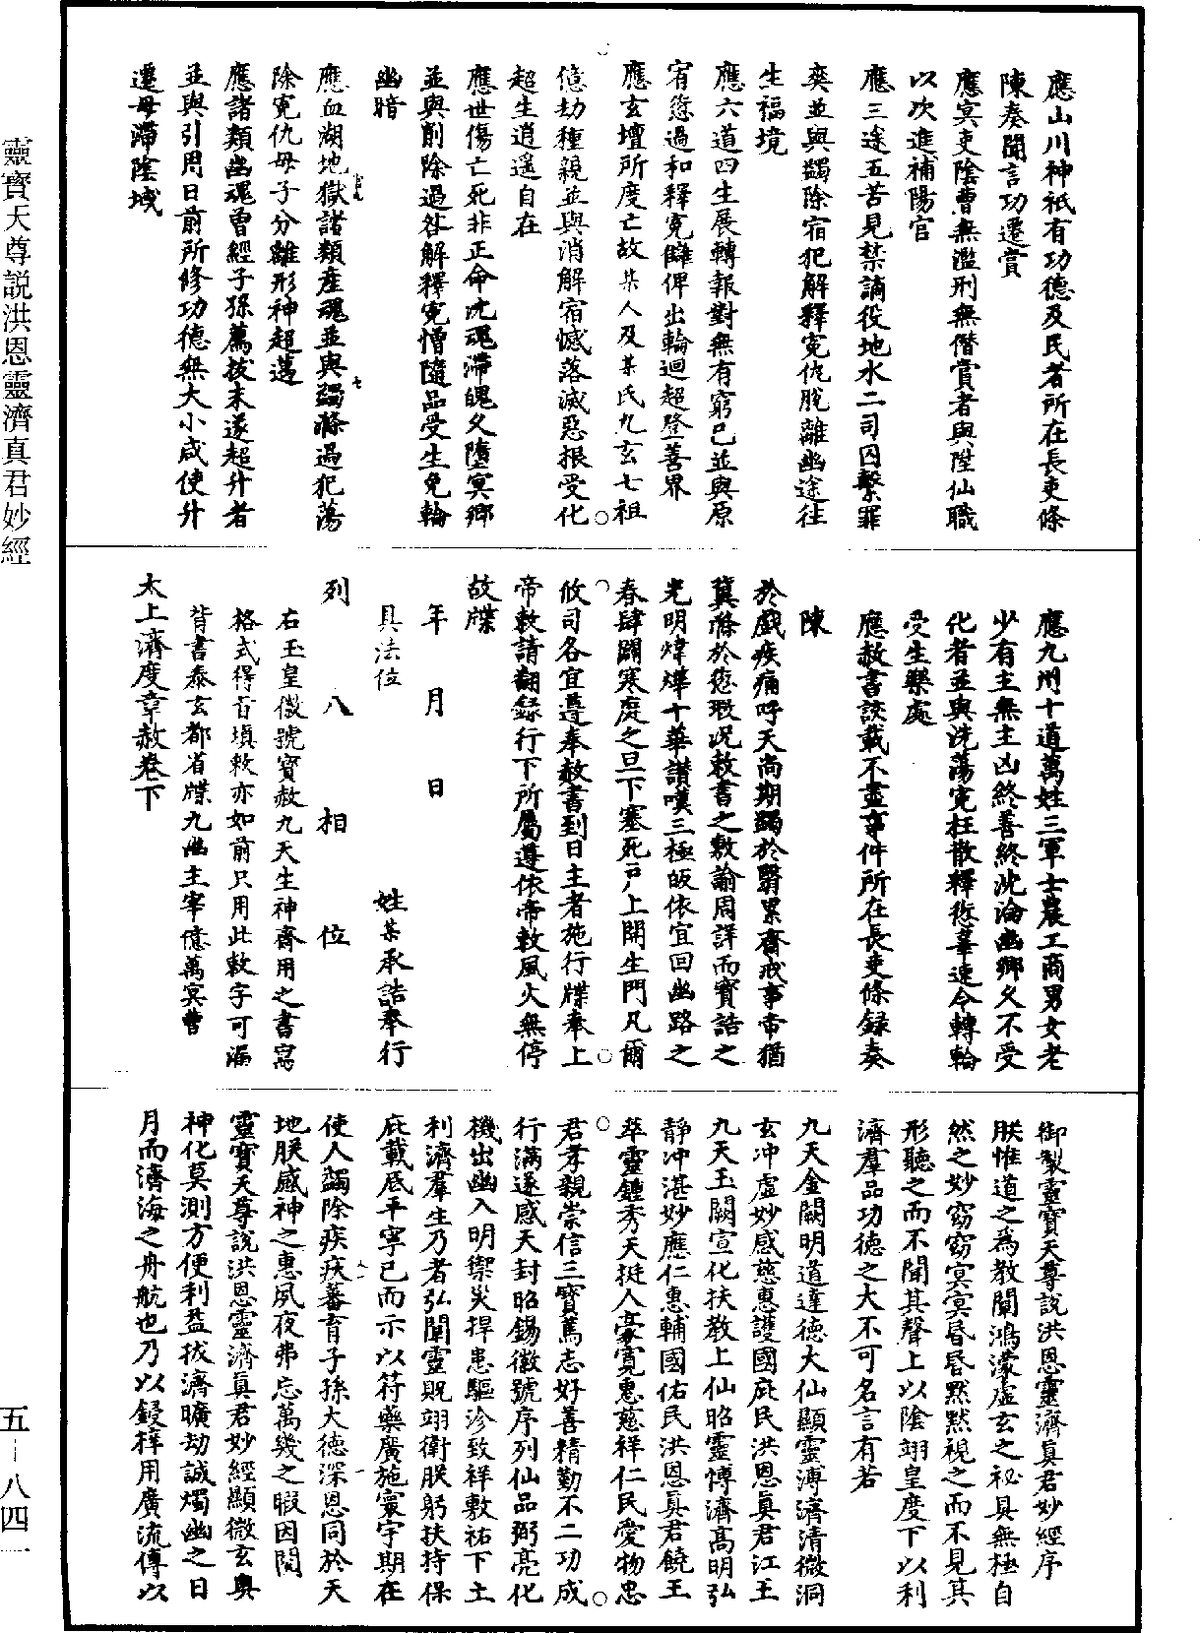 應山川神祇有功德及民者所在長吏條
陳奏聞言功遷賞
應冥吏陰曹無濫刑無僭賞者與陞仙職
以次進補陽官
應三途五苦見禁謫役地水二司囚繫罪
爽並與蠲除宿犯解釋冤仇脫離幽途往
生福境
應六道四生展轉報對無有窮已並與原
宥愆過和釋冤讎俾出輪迴超登善界
應玄壇所度亡故某人及某氏九玄七祖
億劫種親並與消解宿憾落滅惡根受化
超生逍遙自在
應世傷亡死非正命沈魂滯魄久墮冥鄉
並與削除過咎解釋冤憎隨品受生免輪
幽暗
應血湖地獄諸類產魂並與蠲滌過犯蕩
除冤仇母子分離形神超邁
應諸類幽魂曾經子孫薦拔未遂超升者
並與引用日前所修功德無大小咸使升
遷毋滯陰域
應九州十道萬姓三軍士農工商男女老
少有主無主凶終善終沈淪幽鄉久不受
化者並與洗蕩冤枉散釋愆辜速令轉輪
受生樂處
應赦書該載不盡事件所在長吏條錄奏
陳
於戲疾痛呼天尚期蠲於翳累齋戒事帝猶
冀滌於愆瑕況敕書之敷諭周詳而寶誥之
光明煒燁十華讚嘆三極皈依宜回幽路之
春肆闢寒庭之旦下塞死戶上開生門凡爾
攸司各宜遵奉赦書到日主者施行牒奉上
帝敕請翻錄行下所屬遵依帝敕風火無停
故牒
年 月 日
具法位 姓某承誥奉行
列 八 相 位
右玉皇徽號寶赦九天生神齋用之書寫
格式得旨填敕亦如前只用此敕字可漏
背書泰玄都省牒九幽主宰億萬冥曹
太上濟度章赦卷下
御製靈寶天尊說洪恩靈濟真君妙經序
朕惟道之為教闡鴻濛虛玄之祕具無極自
然之妙窈窈冥冥昏昏默默視之而不見其
形聽之而不聞其聲上以陰翊皇度下以利
濟羣品功德之大不可名言有若
九天金闕明道達德大仙顯靈溥濟清微洞
玄沖虛妙感慈惠護國庇民洪恩真君江王
九天玉闕宣化扶教上仙昭靈博濟高明弘
靜沖湛妙應仁惠輔國佑民洪恩真君饒王
萃靈鍾秀天挺人豪寬惠慈祥仁民愛物忠
君孝親崇信三寶篤志好善精勤不二功成
行滿遂感天封昭錫徽號序列仙品弼亮化
機出幽入明禦災捍患驅沴致祥敷祐下土
利濟羣生乃者弘闡靈貺翊衛朕躬扶持保
庇載底平寧已而示以符藥廣施寰宇期在
使人蠲除疾疢蕃育子孫大德深恩同於天
地朕感神之惠夙夜弗忘萬幾之暇因閱
靈寶天尊說洪恩靈濟真君妙經顯微玄奧
神化莫測方便利益拔濟曠劫誠燭幽之日
月而濟海之舟航也乃以鋟梓用廣流傳以
靈寶天尊說洪恩靈濟真君妙經
五－八四一